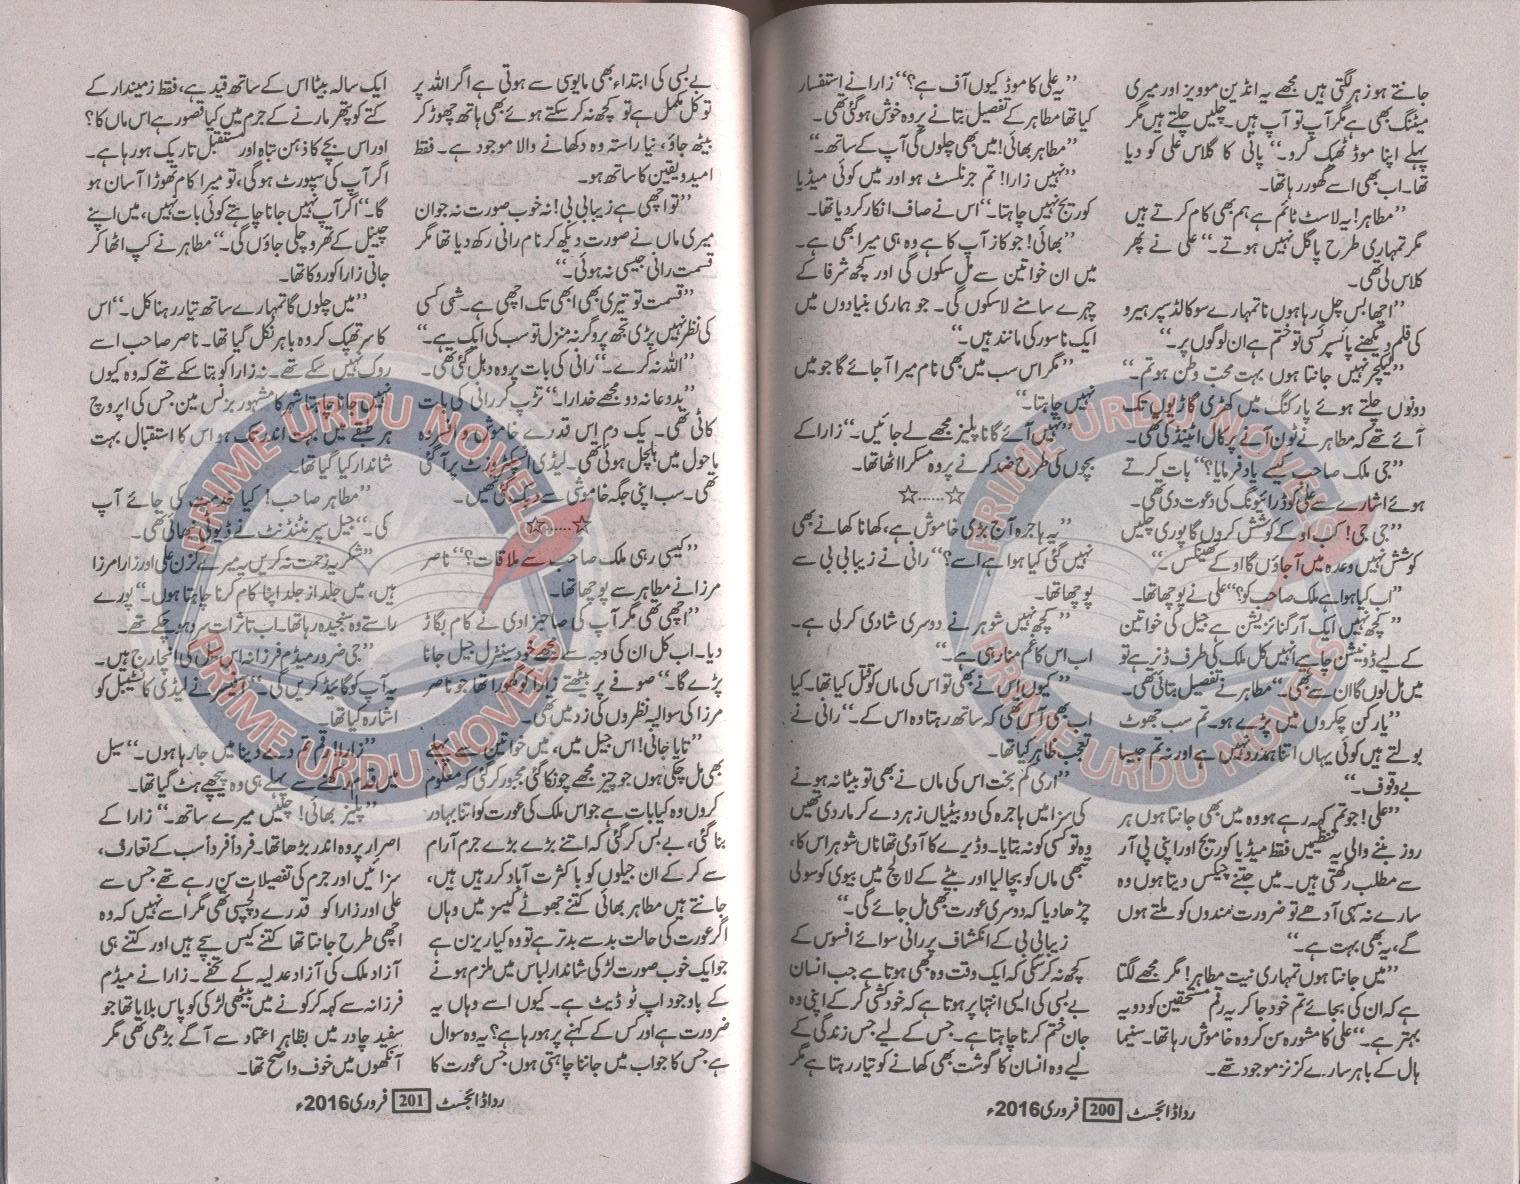 جانتے ہو زہر لگتی ہیں مجھے یہ انڈین موویز اور میری
میٹنگ بھی ہے مگر آپ تو آپ ہیں۔ چلیں چلتے ہیں مگر
پہلے اپنا موڈ ٹھیک کرو۔‘‘ پانی کا گلاس علی کو دیا
تھا۔ اب بھی اسے گھور رہا تھا۔
’’مطاہر! یہ لاسٹ ٹائم ہے ہم بھی کام کرتے ہیں
مگر تمہاری طرح پاگل نہیں ہوتے۔‘‘ علی نے پھر
کلاس لی تھی۔
’’اچھا بس چل رہا ہوں نا تمہارے سو کالڈ سپر ہیرو
کی فلم دیکھنے پائسپر لسی تو ختم ہے ان لوگوں پر۔‘‘
’’لیکچر نہیں جانتا ہوں بہت محب وطن ہو تم۔‘‘
دونوں چلتے ہوئے پارکنگ میں کھڑی گاڑیوں تک
آئے تھے کہ مطاہر نے ٹون آنے پر کال اٹینڈ کی تھی۔
’’جی ملک صاحب کیسے یاد فرمایا؟‘‘ بات کرتے
ہوئے اشارے سے علی کو ڈرائیونگ کی دعوت دی تھی۔
’’جی جی! کب اوکے کوشش کروں گا پوری چلیں
کوشش نہیں وعدہ میں آجاؤں گا اوکے تھینکس۔‘‘
’’اب کیا ہوا ہے ملک صاحب کو؟‘‘ علی نے پوچھا تھا۔
’’کچھ نہیں ایک آرگنائزیشن ہے جیل کی خواتین
کے لیے ڈونیشن چاہیے انہیں کل ملک کی طرف ڈنر ہے تو
میں مل لوں گا ان سے بھی۔‘‘ مطاہر نے تفصیل بتائی تھی۔
’’یار کن چکروں میں پڑے ہو۔ تم سب جھوٹ
بولتے ہیں کوئی یہاں اتنا ہمدرد نہیں ہے اور نہ تم جیسا
بے وقوف۔‘‘
’’علی! جو تم کہہ رہے ہو وہ میں بھی جانتا ہوں ہر
روز بننے والی یہ تنظیمیں فقط میڈیا کوریج اور اپنی پی آر
سے مطلب رکھتی ہیں۔ میں جتنے چیکس دیتا ہوں وہ
سارے نہ سہی آدھے تو ضرورت مندوں کو ملتے ہوں
گے، یہ بھی بہت ہے۔‘‘
’’میں جانتا ہوں تمہاری نیت مطاہر! مگر مجھے لگتا
ہے کہ ان کی بجائے تم خود جا کر یہ رقم مستحقین کو دو یہ
بہتر ہے۔‘‘ علی کا مشورہ سن کر وہ خاموش رہا تھا۔ سنیما
ہال کے باہر سارے کزنز موجود تھے۔
’’یہ علی کا موڈ کیوں آف ہے؟‘‘ زارا نے استفسار
کیا تھا مطاہر کے تفصیل بتانے پر وہ خوش ہو گئی تھی۔
’’مطاہر بھائی! میں بھی چلوں گی آپ کے ساتھ۔‘‘
’’نہیں زارا! تم جرنلسٹ ہو اور میں کوئی میڈیا
کوریج نہیں چاہتا۔‘‘ اس نے صاف انکار کر دیا تھا۔
’’بھائی! جو کاز آپ کا ہے وہ ہی میرا بھی ہے۔
میں ان خواتین سے مل سکوں گی اور کچھ شرفا کے
چہرے سامنے لا سکوں گی۔ جو ہماری بنیادوں میں
ایک ناسور کی مانند ہیں۔‘‘
’’مگر اس سب میں بھی نام میرا آجائے گا جو میں
نہیں چاہتا۔‘‘
’’نہیں آئے گا نا پلیز مجھے لے جائیں۔‘‘ زارا کے
بچوں کی طرح ضد کرنے پر وہ مسکرا اٹھا تھا۔
☆......☆
’’یہ ہاجرہ آج بڑی خاموش ہے، کھانا کھانے بھی
نہیں گئی کیا ہوا ہے اسے؟‘‘ رانی نے زیبا بی بی سے
پوچھا تھا۔
’’کچھ نہیں شوہر نے دوسری شادی کر لی ہے۔
اب اس کا غم منا رہی ہے۔‘‘
’’کیوں اس نے بھی تو اس کی ماں کو قتل کیا تھا۔ کیا
اب بھی آس تھی کہ ساتھ رہتا وہ اس کے۔‘‘ رانی نے
تعجب ظاہر کیا تھا۔
’’اری کم بخت اس کی ماں نے بھی تو بیٹا نہ ہونے
کی سزا میں ہاجرہ کی دو بیٹیاں زہر دے کر مار دی تھیں
وہ تو کسی کو نہ بتایا۔ وڈیرے کا آدمی تھا ناں شوہر اس کا،
تبھی ماں کو بچا لیا اور بیٹے کے لالچ میں بیوی کو سولی
چڑھا دیا کہ دوسری عورت بھی مل جائے گی۔‘‘
زیبا بی بی کے انکشاف پر رانی سوائے افسوس کے
کچھ نہ کر سکی کہ ایک وقت وہ بھی ہوتا ہے جب انسان
بے بسی کی ایسی انتہا پر ہوتا ہے کہ خودکشی کر کے اپنی وہ
جان ختم کرنا چاہتا ہے۔ جس کے لیے جس زندگی کے
لیے وہ انسان کا گوشت بھی کھانے کو تیار رہتا ہے مگر
رداڈائجسٹ 200 فروری 2016ء
بے بسی کی ابتداء بھی مایوسی سے ہوتی ہے اگر اللہ پر
توکل مکمل ہے تو کچھ نہ کر سکتے ہوئے بھی ہاتھ چھوڑ کر
بیٹھ جاؤ، نیا راستہ وہ دکھانے والا موجود ہے۔ فقط
امید و یقین کا ساتھ ہو۔
’’تو اچھی ہے زیبا بی بی! نہ خوب صورت نہ جوان
میری ماں نے صورت دیکھ کر نام رانی رکھ دیا تھا مگر
قسمت رانی جیسی نہ ہوئی۔‘‘
’’قسمت تو تیری بھی ابھی تک اچھی ہے۔ شی کسی
کی نظر نہیں پڑی تجھ پر وگرنہ منزل تو سب کی ایک ہے۔‘‘
’’اللہ نہ کرے۔‘‘ رانی کی بات پر وہ دہل گئی تھی۔
’’بددعا نہ دو مجھے خدارا۔‘‘ تڑپ کر رانی کی بات
کاٹی تھی۔ یک دم اس قدرے خاموش و افسردہ
ماحول میں ہلچل ہوئی تھی۔ لیڈی انسپکٹر وزٹ پر آگئی
تھی۔ سب اپنی جگہ خاموشی سے دبک گئی تھیں۔
☆......☆
’’کیسی رہی ملک صاحب سے ملاقات؟‘‘ ناصر
مرزا نے مطاہر سے پوچھا تھا۔
’’اچھی تھی مگر آپ کی صاحبزادی نے کام بگاڑ
دیا۔ اب کل ان کی وجہ سے مجھے خود سینٹرل جیل جانا
پڑے گا۔‘‘ صوفے پر بیٹھتے زارا کو گھورا تھا جو ناصر
مرزا کی سوالیہ نظروں کی زد میں تھی۔
’’تایا جانی! اس جیل میں، میں خواتین سے پہلے
بھی مل چکی ہوں جو چیز مجھے چونکا گئی مجبور کر گئی کہ معلوم
کروں وہ کیا بات ہے جو اس ملک کی عورت کو اتنا بہادر
بنا گئی، بے بس کر گئی کہ اتنے بڑے بڑے جرم آرام
سے کر کے ان جیلوں کو با کثرت آباد کر رہی ہیں،
جانتے ہیں مطاہر بھائی کتنے جھوٹے کیسز میں وہاں
اگر عورت کی حالت بد سے بدتر ہے تو وہ کیا ریزن ہے
جو ایک خوب صورت لڑکی شاندار لباس میں ملزم ہونے
کے باوجود اپ ٹو ڈیٹ ہے۔ کیوں اسے وہاں یہ
ضرورت ہے اور کس کے کہنے پر ہو رہا ہے؟ یہ وہ سوال
ہے جس کا جواب میں جاننا چاہتی ہوں جس عورت کا
ایک سالہ بیٹا اس کے ساتھ قید ہے، فقط زمیندار کے
کتے کو پتھر مارنے کے جرم میں کیا قصور ہے اس ماں کا؟
اور اس بچے کا ذہن تباہ اور مستقبل تاریک ہو رہا ہے۔
اگر آپ کی سپورٹ ہوگی، تو میرا کام تھوڑا آسان ہو
گا۔‘‘ اگر آپ نہیں جانا چاہتے کوئی بات نہیں، میں اپنے
چینل کے تھرو چلی جاؤں گی۔‘‘ مطاہر نے کپ اٹھا کر
جاتی زارا کو روکا تھا۔
’’میں چلوں گا تمہارے ساتھ تیار رہنا کل۔‘‘ اس
کا سر تھپک کر وہ باہر نکل گیا تھا۔ ناصر صاحب اسے
روک نہیں سکے تھے۔ نہ زارا کو بتا سکے تھے کہ وہ کیوں
نہیں جانا چاہتا شہر کا مشہور بزنس مین جس کی اپروچ
ہر طبقے میں بہت اندر تک ہو اس کا استقبال بہت
شاندار کیا گیا تھا۔
’’مطاہر صاحب! کیا خدمت کی جائے آپ
کی۔‘‘ جیل سپرنٹنڈنٹ نے ڈیوٹی نبھائی تھی۔
’’شکریہ زحمت نہ کریں یہ میرے کزن علی اور زارا مرزا
ہیں، میں جلد از جلد اپنا کام کرنا چاہتا ہوں۔‘‘ پورے
راستے وہ سنجیدہ رہا تھا۔ اب تاثرات سرد ہو چکے تھے۔
’’جی ضرور میڈم فرزانہ اس سیل کی انچارج ہیں۔
یہ آپ کو گائیڈ کریں گی۔‘‘ آفیسر نے لیڈی کانسٹیبل کو
اشارہ کیا تھا۔
’’زارا! رقم تم دے دینا میں جا رہا ہوں۔‘‘ سیل
میں قدم رکھنے سے پہلے ہی وہ پیچھے ہٹ گیا تھا۔
’’پلیز بھائی! چلیں میرے ساتھ۔‘‘ زارا کے
اصرار پر وہ اندر بڑھا تھا۔ فرداً فرداً سب کے تعارف،
سزائیں اور جرم کی تفصیلات سن رہے تھے جس سے
علی اور زارا کو قدرے دلچسپی تھی مگر اسے نہیں کہ وہ
اچھی طرح جانتا تھا کتنے کیس سچے ہیں اور کتنے ہی
آزاد ملک کی آزاد عدلیہ کے تحفے۔ زارا نے میڈم
فرزانہ سے کہہ کر کونے میں بیٹھی لڑکی کو پاس بلایا تھا جو
سفید چادر میں بظاہر اعتماد سے آگے بڑھی تھی مگر
آنکھوں میں خوف واضح تھا۔
رداڈائجسٹ 201 فروری 2016ء
PRIME URDU NOVELS
PRIME URDU NOVELS
PRIME URDU NOVELS
PRIME URDU NOVELS